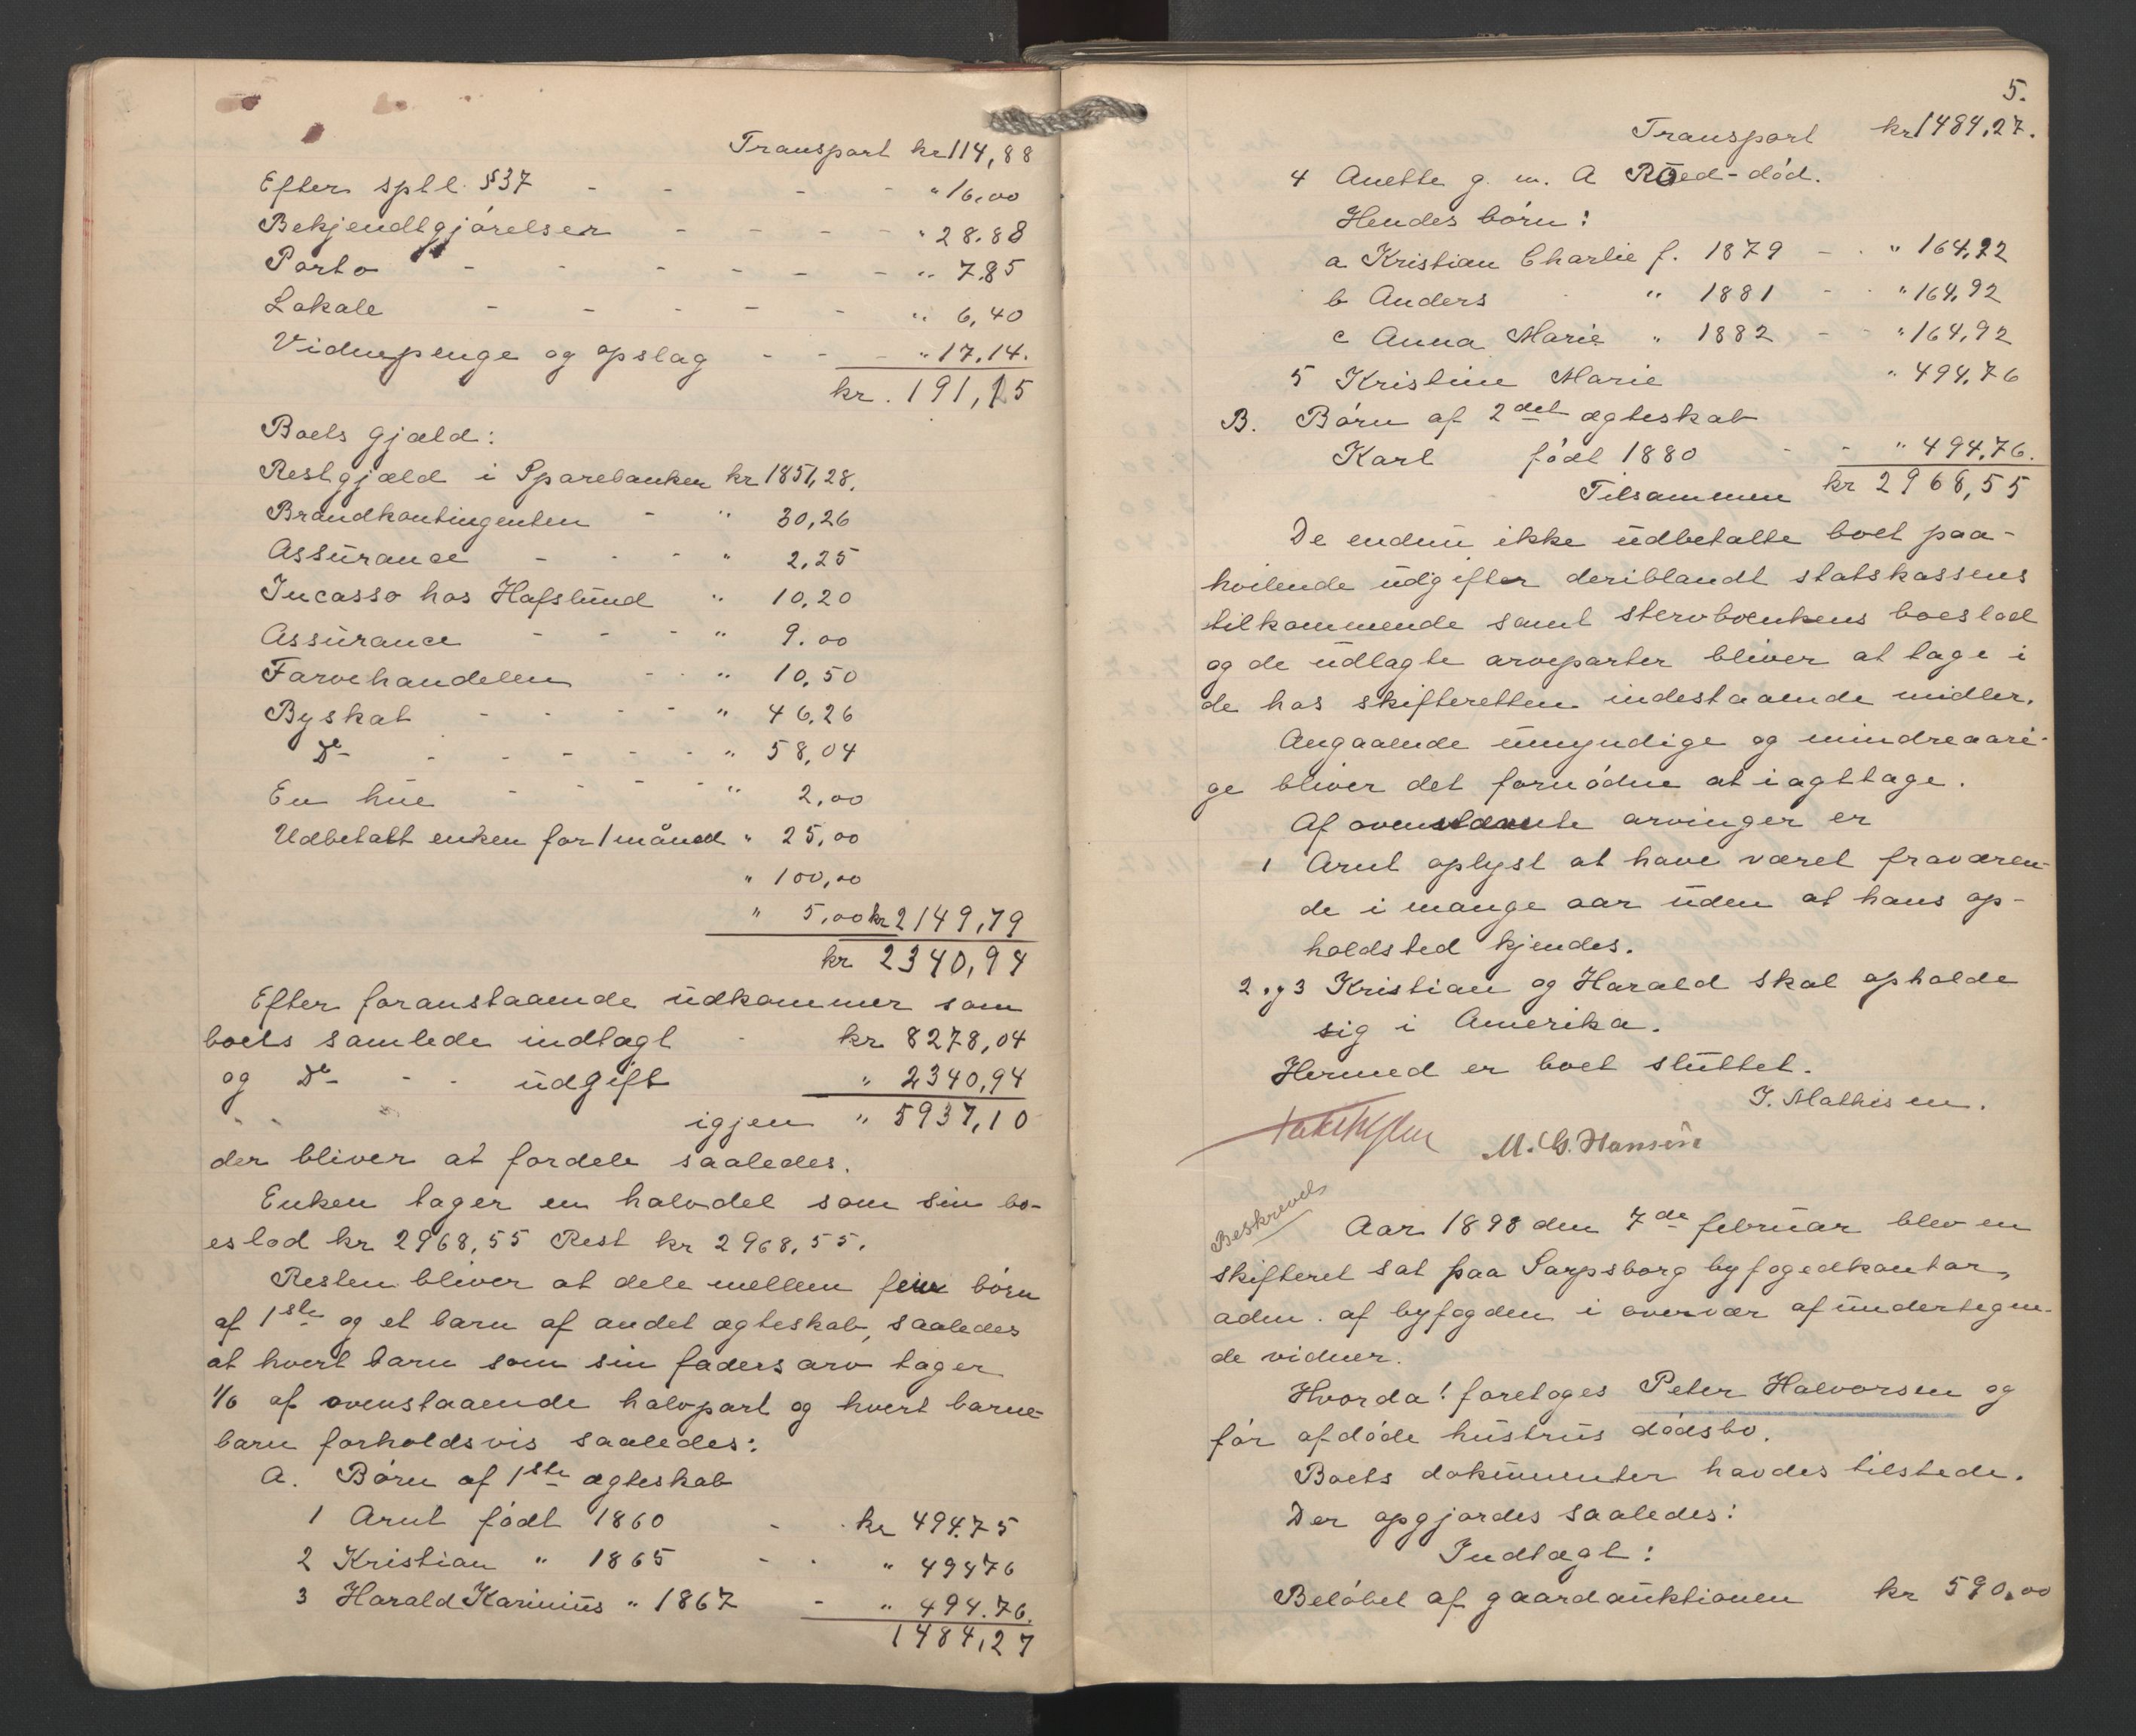 Transport kr 114,88
Efter sptl. §37 - - - - " 16,00
Bekjendtgjørelser - - - - " 28.88
Porto - - - - - - " 7.85
Lokale - - - - - " 6,40
Vidnepenge og opslag - - - " 17.14.
kr. 191,15
Boets gjæld:
Restgjæld i Sparebanken kr 1851,28.
Brandkontingenten - " 30,26
Assurance - - - " 2,25
Incasso hos Hafslund " 10,20
Assurance - - - " 9.00
Farvehandelen - - " 10,50
Byskat - - - - " 46,26
Do - - - - - " 58,04
En hue - - - - " 2,00
Udbetalt enken for 1 måned " 25,00
" 100,00
" 5,00 kr 2149,79
kr 2340,94
Efter foranstaaende udkommer som
boets samlede indtægt - kr 8278,04
og Do - - udgift " 2340,94
igjen " 5937,10
der bliver at fordele saaledes.
Enken tager en halvdel som sin bo-
eslod kr 2968,55 Rest kr 2968,55.
Resten bliver at dele mellem fem børn
af 1ste og et barn af andet ægteskab, saaledes
at hvert barn som sin fædersarv tager
1/6 af ovenstaaende halvpart og hvert barne-
barn forholdsvis saaledes:
A. Børn af 1ste ægteskab
1 Arnt født 1860 - - kr 494.75
2 Kristian " 1865 - - " 49476
3 Harald Karinius " 1867 - " 494.76.
1484,27
5.
Transport kr 1484,27.
4 Anette g. m. A Røed - død.
Hendes børn:
a Kristian Charlie f. 1879 - - " 164,92
b Anders " 1881 - - " 164,92
c Anna Marie " 1882 - - " 164,92
5 Kristine Marie " 494,76
B. Børn af 2det ægteskab
Karl født 1880 - - " 494,76.
Tilsammen kr 2968,55
De endnu ikke udbetalte boet paa-
hvilende udgifter deriblandt statskassens
tilkommende samt stervboenkens boeslod
og de udlagte arveparter bliver at tage i
de hos skifteretten indestaaende midler.
Angaaende umyndige og mindreaari-
ge bliver det fornødne at iagttage.
Af ovennævnte arvinger er
1 Arnt oplyst at have været fraværen-
de i mange aar uden at hans op-
holdsted kjendes.
2 og 3 Kristian og Harald skal opholde
sig i Amerika.
Hermed er boet sluttet.
I. Mathisen.
M. G. Hansen
Beskrevet
Aar 1898 den 7de februar blev en
skifteret sat paa Sarpsborg byfogedkontor,
adm. af byfogden i overvær af undertegne-
de vidner.
Hvorda! foretoges Peter Halvorsen og
før afdøde hustrus dødsbo.
Boets dokumenter havdes tilstede.
Der opgjordes saaledes:
Indtægt:
Beløbet af gaardauktionen kr 590,00